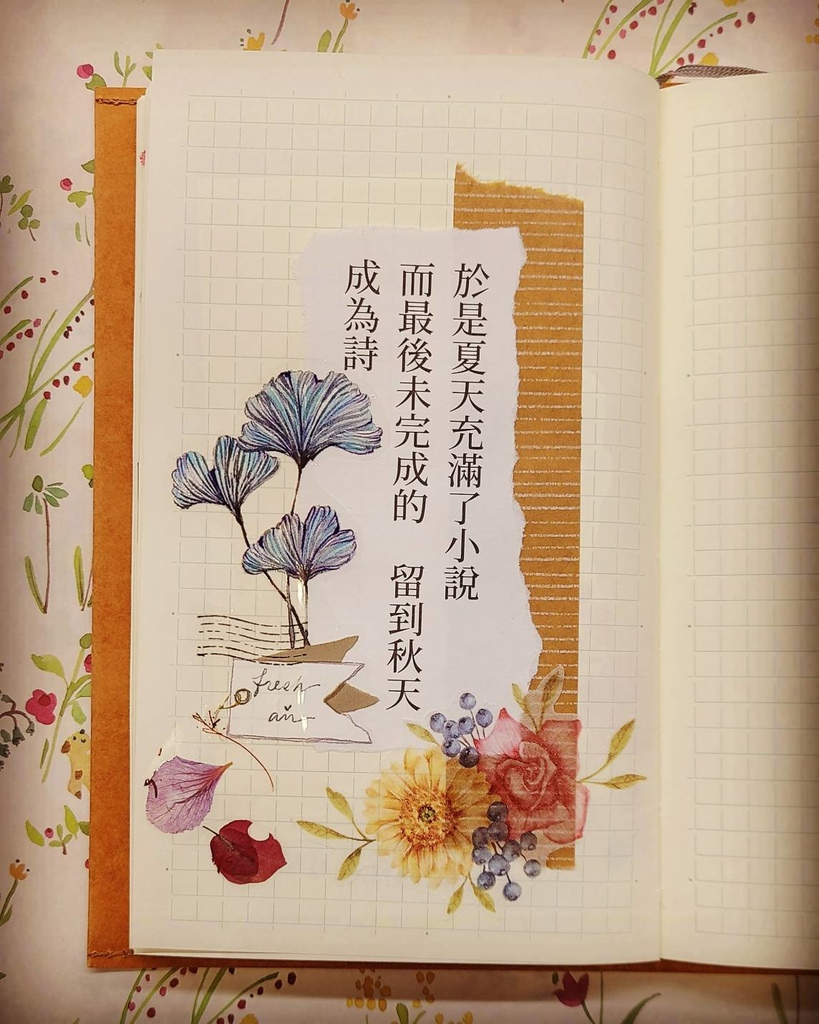 於是夏天充滿了小說
而最後未完成的　留到秋天
成為詩
fresh
air